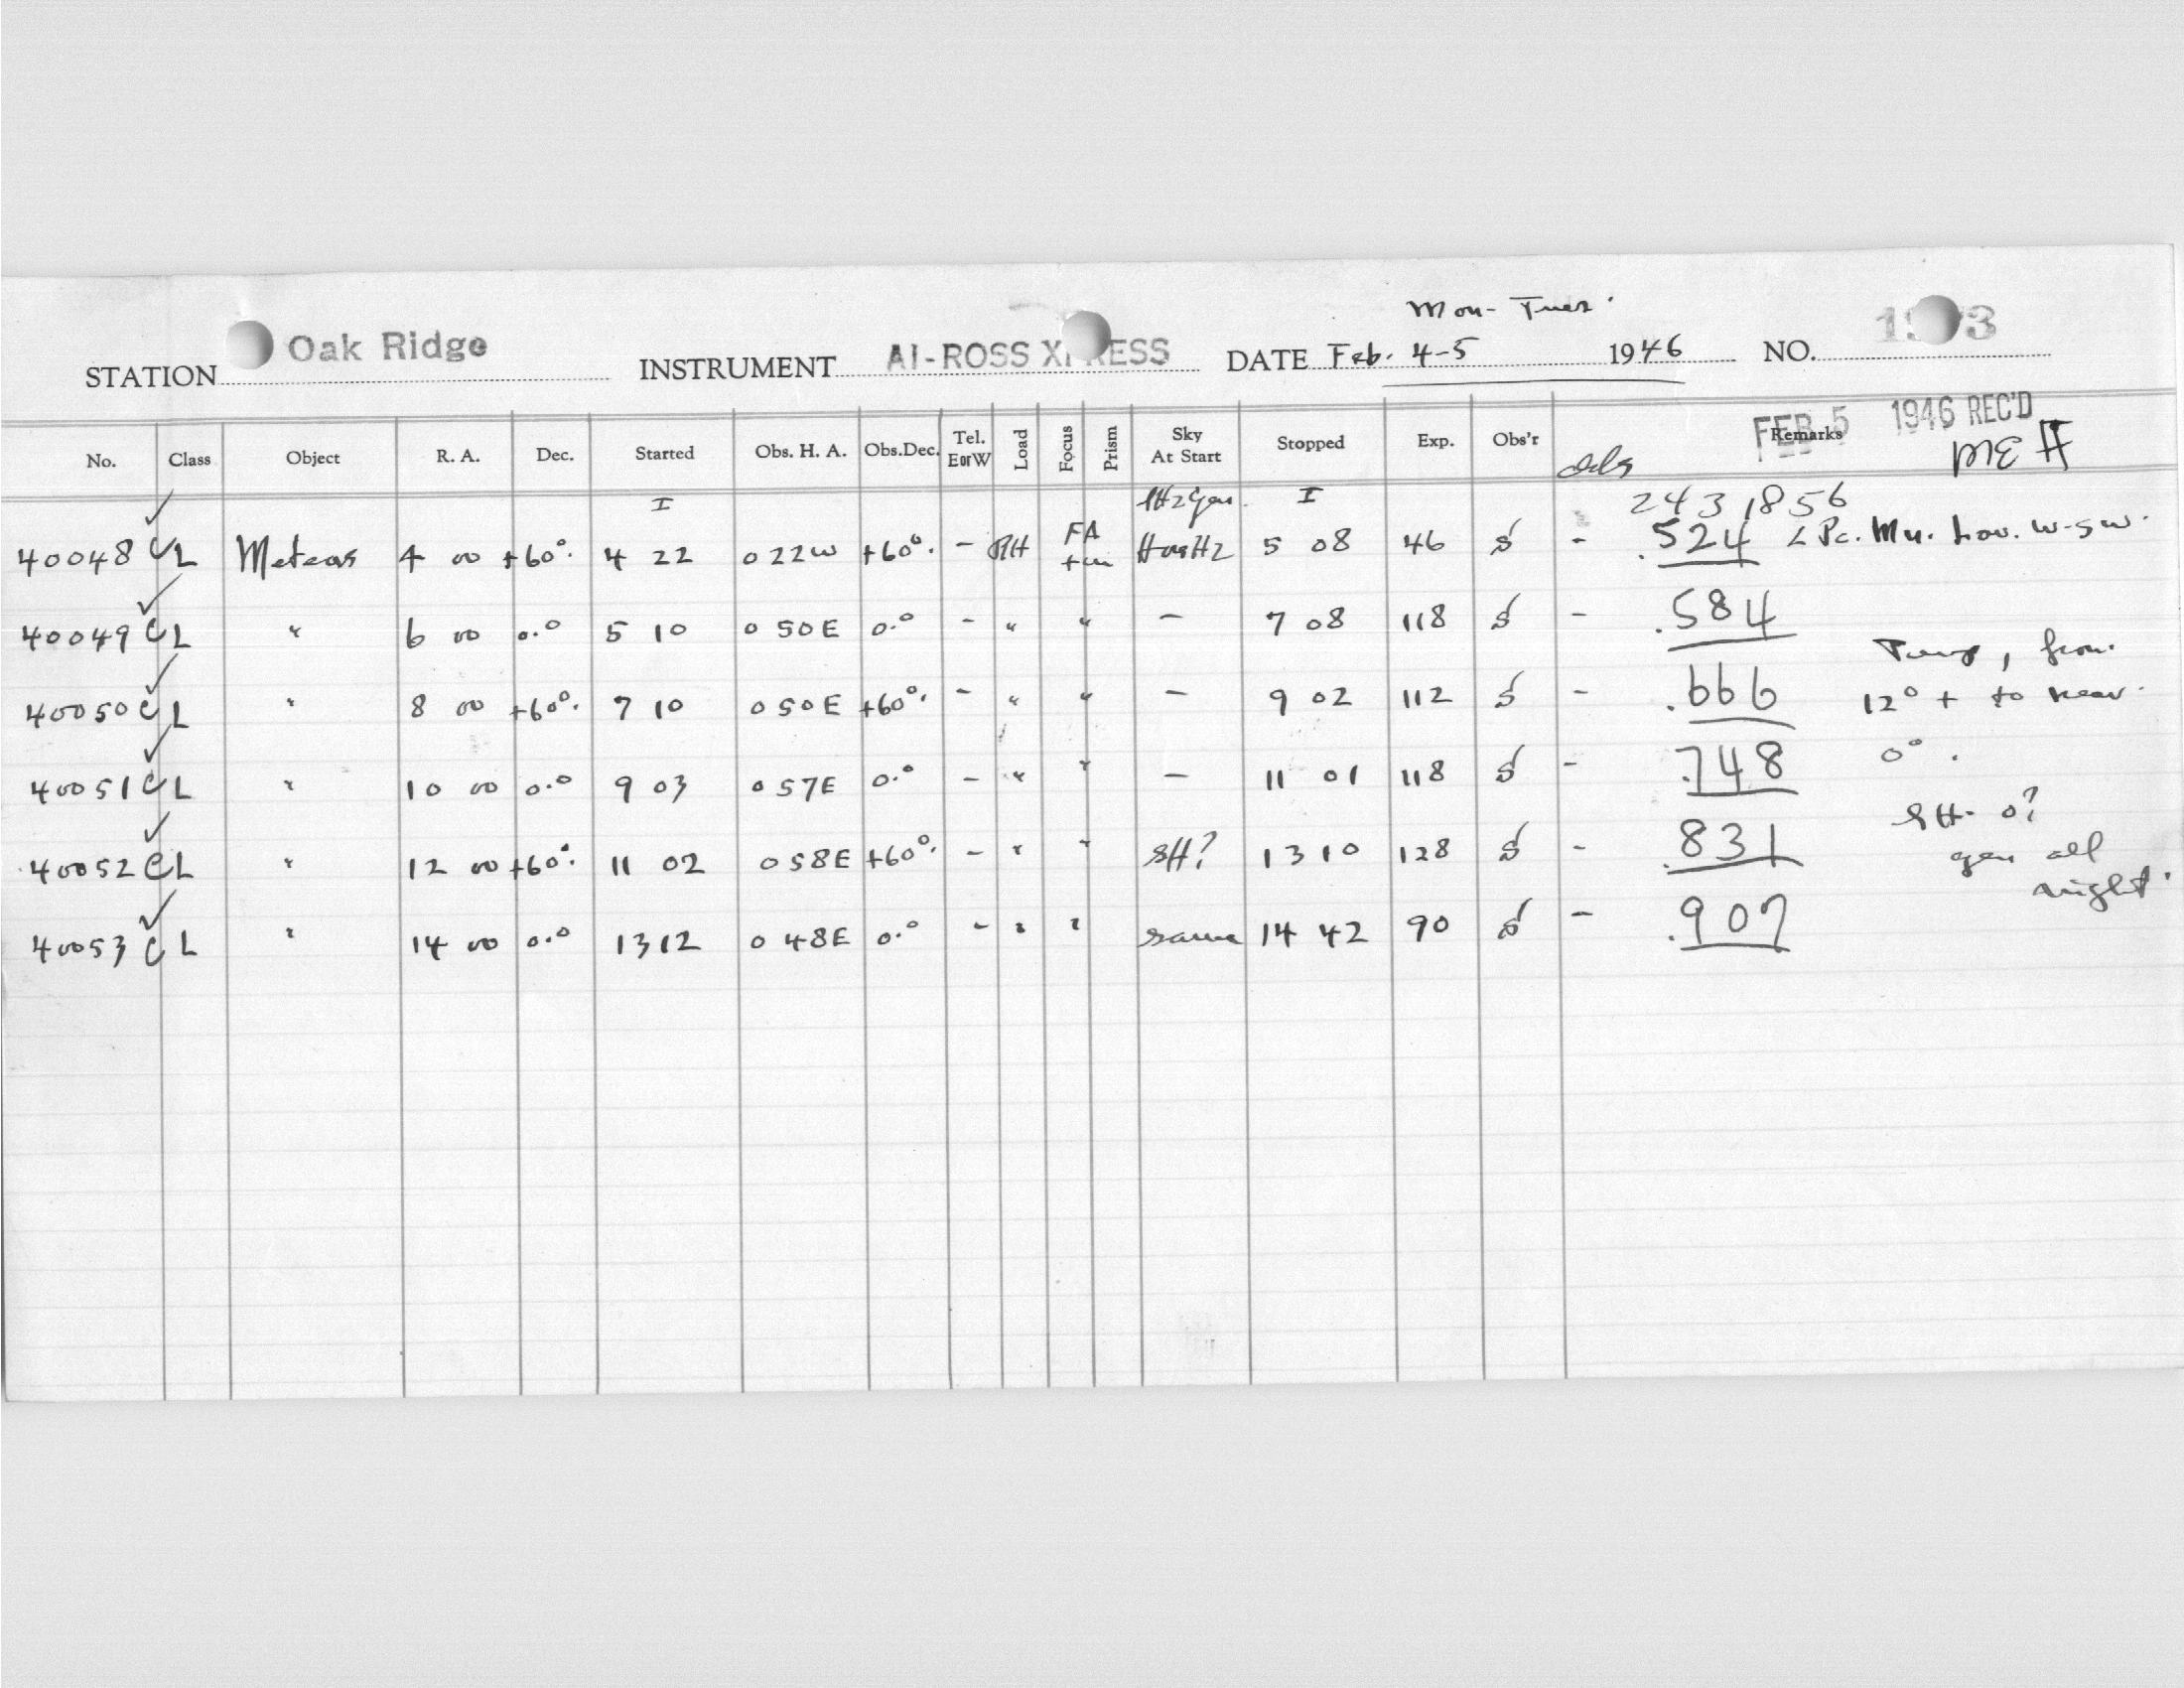 Mon - Tues.
STATION Oak Ridge INSTRUMENT AI-ROSS XPRESS DATE Feb. 4-5 1946 NO. 1 3
FEB 5 1946 REC'D
No. Class Object R. A. Dec. Started Obs. H. A. Obs.Dec. Tel. E or W Load Focus Prism Sky At Start Stopped Exp. Obs'r Remarks MEH
I I 2431856
40048 CL Meteors 4 00 +60°. 4 22 0 22W +60°. - RH FA 5 08 46 S - .524 Mu. W-SW.
40049 CL " 6 00 0.° 5 10 0 50E 0.° - " " - 7 08 118 S - .584
Temp, from
40050 CL " 8 00 +60°. 7 10 0 50E +60°. - " " - 9 02 112 S - .666 12°+ to near
40051 CL " 10 00 0.° 9 03 0 57E 0.° - " " - 11 01 118 S - .748 0°.
SH-0?
40052 CL " 12 00 +60°. 11 02 0 58E +60°. - " " SH? 13 10 128 S - .831 gen all
night.
40053 CL " 14 00 0.° 13 12 0 48E 0.° - " " same 14 42 90 S - .907